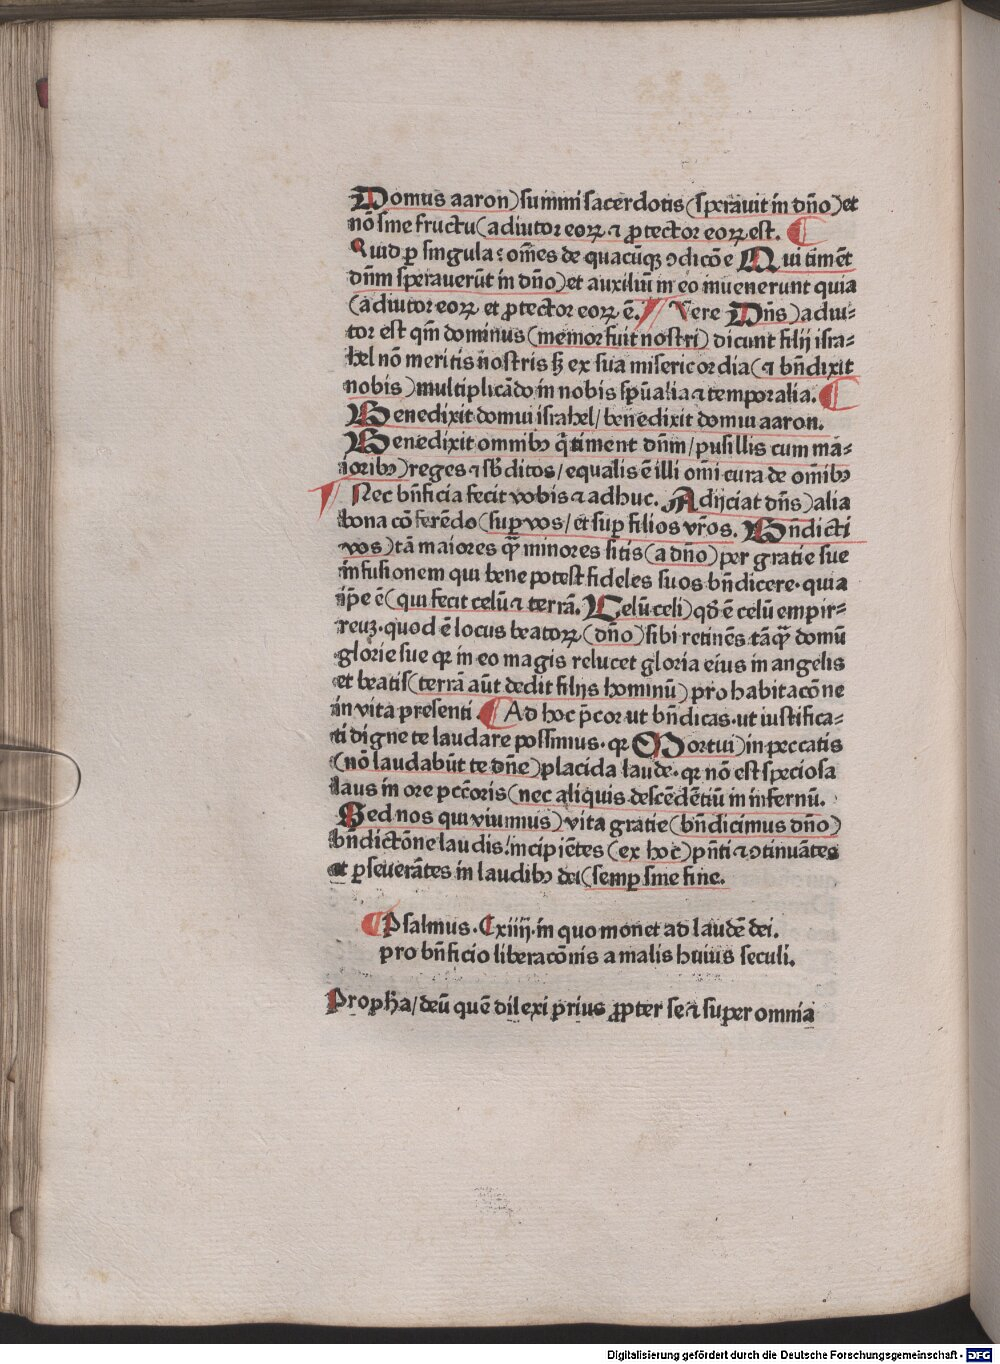 Domus aaron) summi sacerdotis (sperauit in dño) et
nō sine fructu (adiutor eorꝝ ⁊ ꝓtector eorꝝ est.
Quid ꝑ singula: om̄es de quacūqꝫ ↄdicōe Qui timēt
dn̄m sperauerūt in dn̄o) et auxiliū in eo inuenerunt quia
(adiutor eorꝝ et ꝓtector eorꝝ ē. Vere Dn̄s) adiu-
tor est qm̄ dominus (memor fuit nostri) dicunt filij isra-
hel nō meritis nostris sꝫ ex sua misericordia (⁊ bn̄dixit
nobis) multiplicādo in nobis spūalia ⁊ temporalia.
Benedixit domui israhel / benedixit domui aaron.
Benedixit omnibꝫ q̄ timent dn̄m / pusillis cum ma-
ioribꝫ) reges ⁊ sb̄ditos / equalis ē illi om̄i cura de om̄ibꝫ
Nec bn̄ficia fecit vobis ⁊ adhuc. Adijciat dn̄s) alia
bona cōferēdo (suꝑ vos / et suꝑ filios vr̄os. Bn̄dicti
vos) tā maiores qꝫ̄ minores sitis (a dn̄o) per gratie sue
infusionem qui bene potest fideles suos bn̄dicere. quia
ip̄e ē (qui fecit celū ⁊ terrā. Celū celi) qd̄ ē celū empir-
reuꝫ. quod ē locus beatorꝝ (dn̄o) sibi retinēs tāqꝫ̄ domū
glorie sue qꝛ in eo magis relucet gloria eius in angelis
et beatis (terrā aūt dedit filijs hominū) pro habitacōne
in vita presenti. Ad hoc p̄cor ut bn̄dicas. ut iustifica-
ti digne te laudare possimus. qꝛ Mortui) in peccatis
(nō laudabūt te dn̄e) placida laude. qꝛ nō est speciosa
laus in ore peccōris (nec aliquis descēdētiū in infernū.
Sed nos qui viuimus) vita gratie (bn̄dicimus dn̄o)
bn̄dictōne laudis / incipiētes (ex hoc) pn̄ti ⁊ ↄtinuātes
et ꝑseuerātes in laudibꝫ dei (semꝑ sine fine.
Psalmus. Cxiiij. in quo monet ad laudē dei.
pro bn̄ficio liberacōnis a malis huius seculi.
Propħa / deū quē dilexi prius ꝓpter se ⁊ super omnia
Digitalisierung gefördert durch die Deutsche Forschungsgemeinschaft - DFG